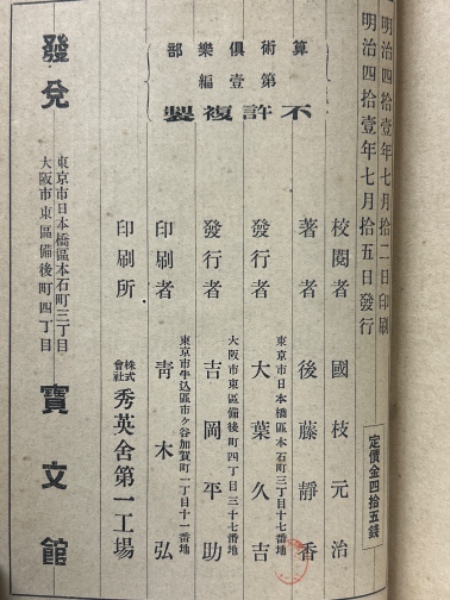 明治四拾壹年七月拾二日印刷
明治四拾壹年七月拾五日發行
定價金四拾五錢
算術俱樂部
第壹編
不許複製
校閱者 國枝元治
著者 後藤靜香
東京市日本橋區本石町三丁目十七番地
發行者 大葉久吉
大阪市東區備後町四丁目三十七番地
發行者 吉岡平助
東京市牛込區市ケ谷加賀町一丁目十一番地
印刷者 青木弘
印刷所 株式會社 秀英舍第一工場
發兌 寶文館
東京市日本橋區本石町三丁目
大阪市東區備後町四丁目